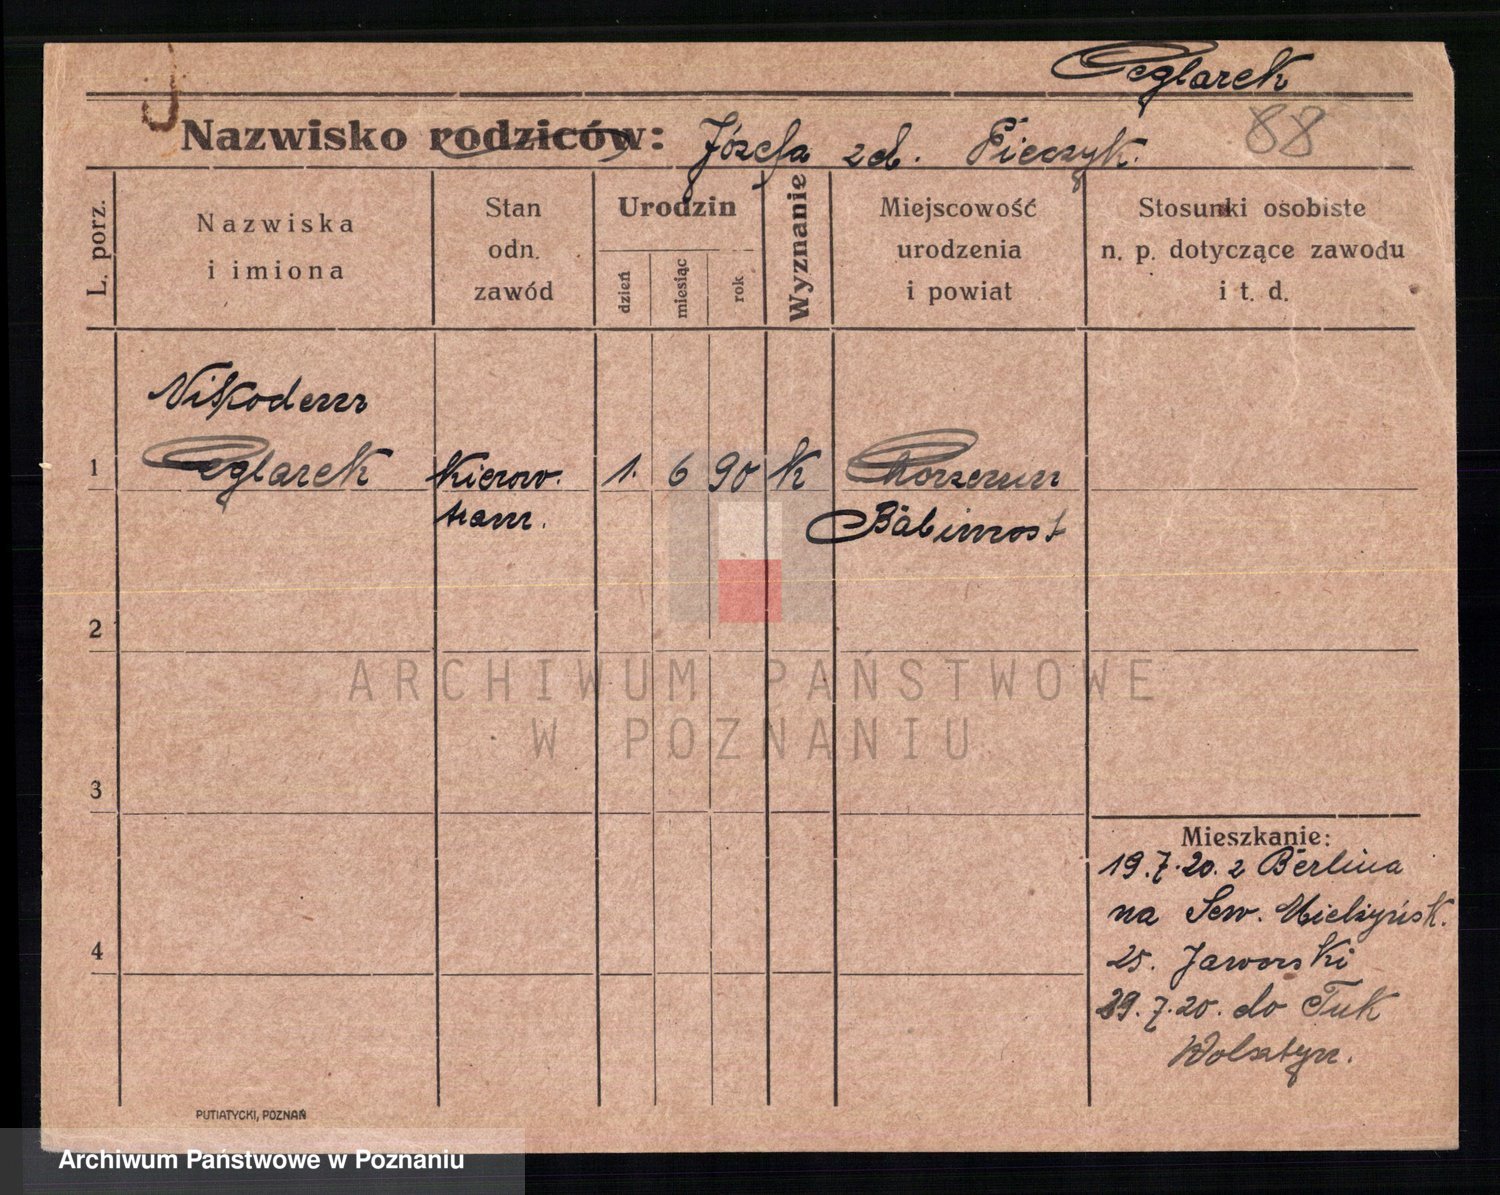 Ceglarek
Nazwisko rodziców: Józefa zd. Pieczyk.
88
L. porz.
Nazwiska
i imiona
Stan
odn.
zawód
Urodzin
dzień
miesiąc
rok
Wyznanie
Miejscowość
urodzenia
i powiat
Stosunki osobiste
n. p. dotyczące zawodu
i t. d.
Nikodem
1 Ceglarek Kierow. 1. 6 90 K Chorzemin
tram. Babimost
2
ARCHIWUM PAŃSTWOWE
W POZNANIU
3
Mieszkanie:
19.7.20. z Berlina
na Sew. Mielżyńsk.
4
25. Jaworski
29.7.20. do Tuk
Wolsztyn.
PUTIATYCKI, POZNAŃ
Archiwum Państwowe w Poznaniu